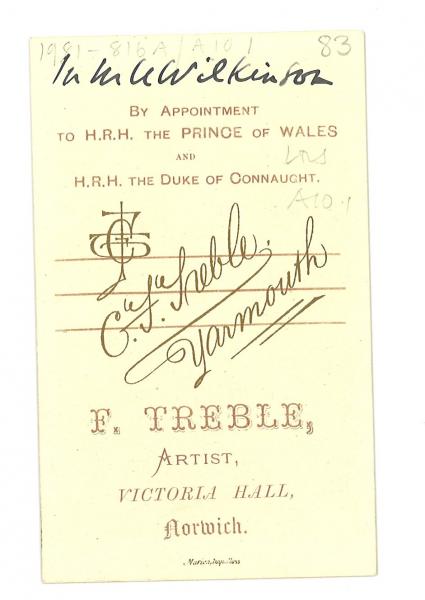 1981-816A/A10 1
83
Wilkinson
BY APPOINTMENT
TO H.R.H. THE PRINCE OF WALES
AND
H.R.H. THE DUKE OF CONNAUGHT.
A10.1
C. F. Treble.
Yarmouth
F. TREBLE,
ARTIST,
VICTORIA HALL,
Norwich.
Marion, Imp. Paris